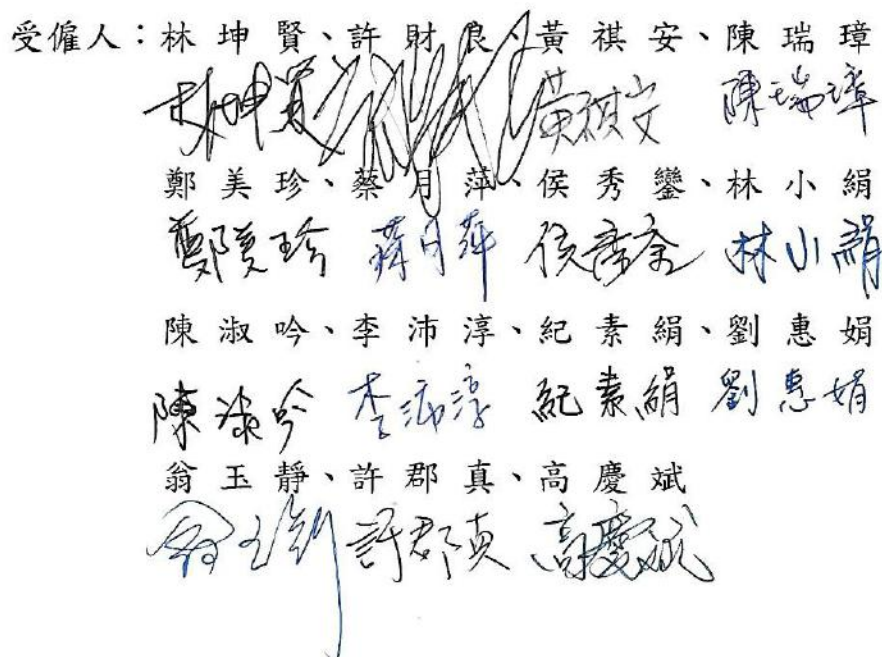 受僱人：林坤賢、許財良、黃祺安、陳瑞璋
林坤賢 黃祺安 陳瑞璋
鄭美珍、蔡月萍、侯秀鑾、林小絹
鄭美珍 蔡月萍 林小絹
陳淑吟、李沛淳、紀素絹、劉惠娟
陳淑吟 李沛淳 紀素絹 劉惠娟
翁玉靜、許郡真、高慶斌
許郡真 高慶斌